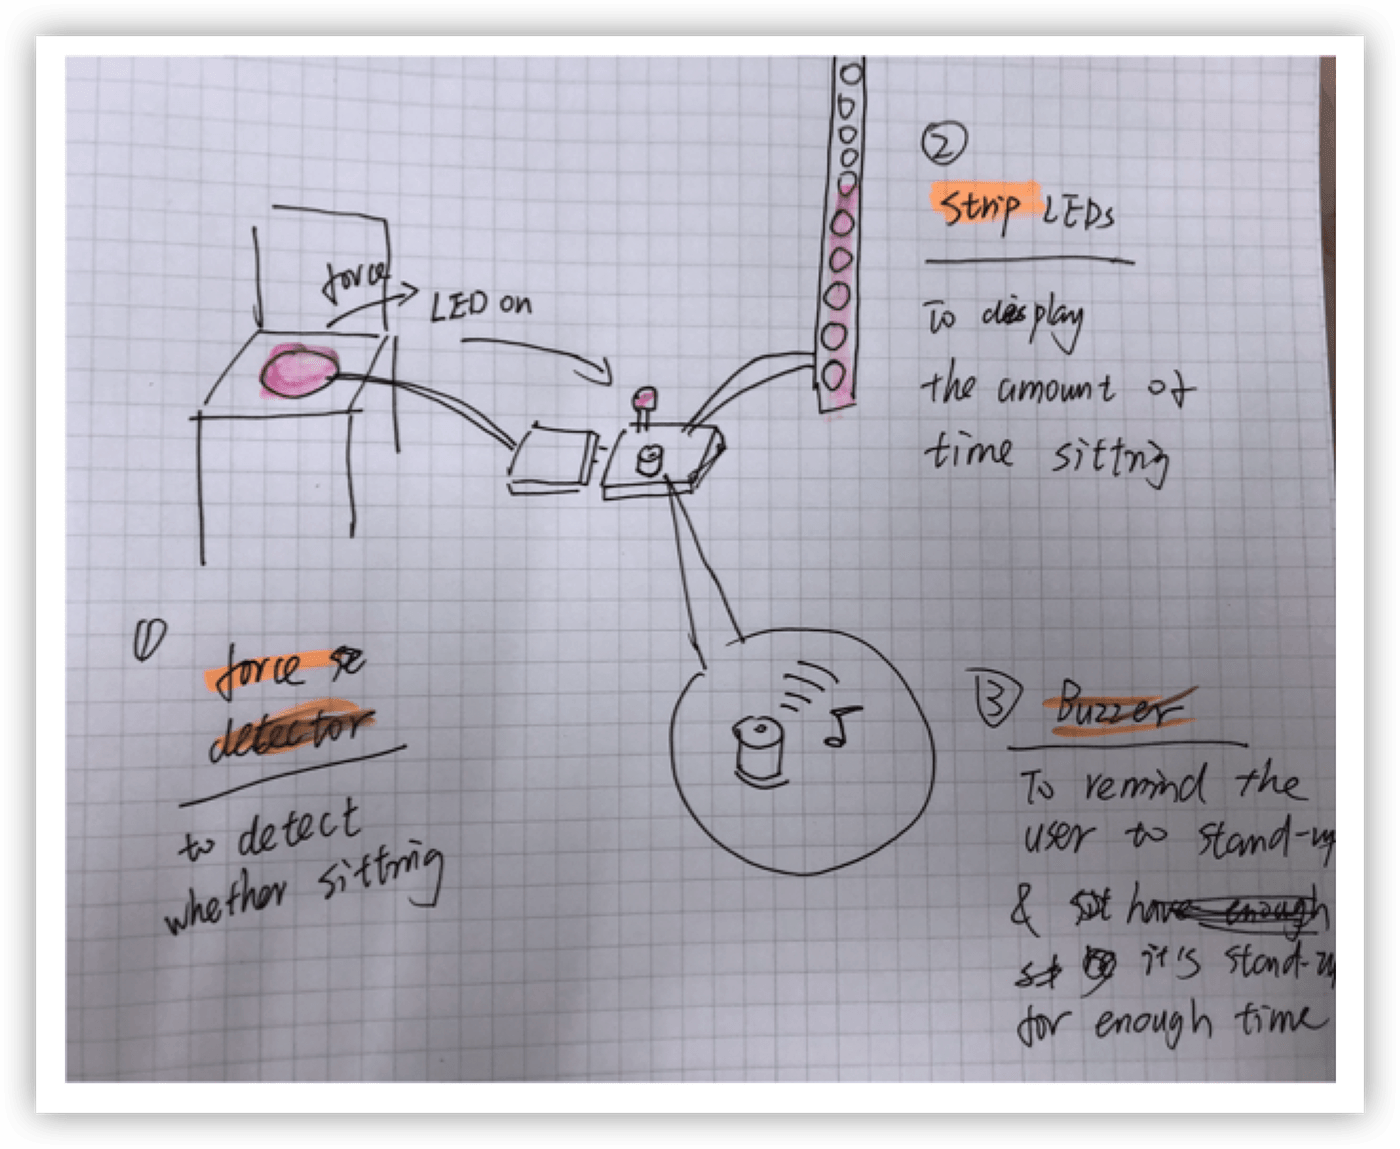 force
LED on
①
force se
detector
to detect
whether sitting
②
Strip LEDs
To display
the amount of
time sitting
③ Buzzer
To remind the
user to stand-up
& have enough
it's stand-u
for enough time